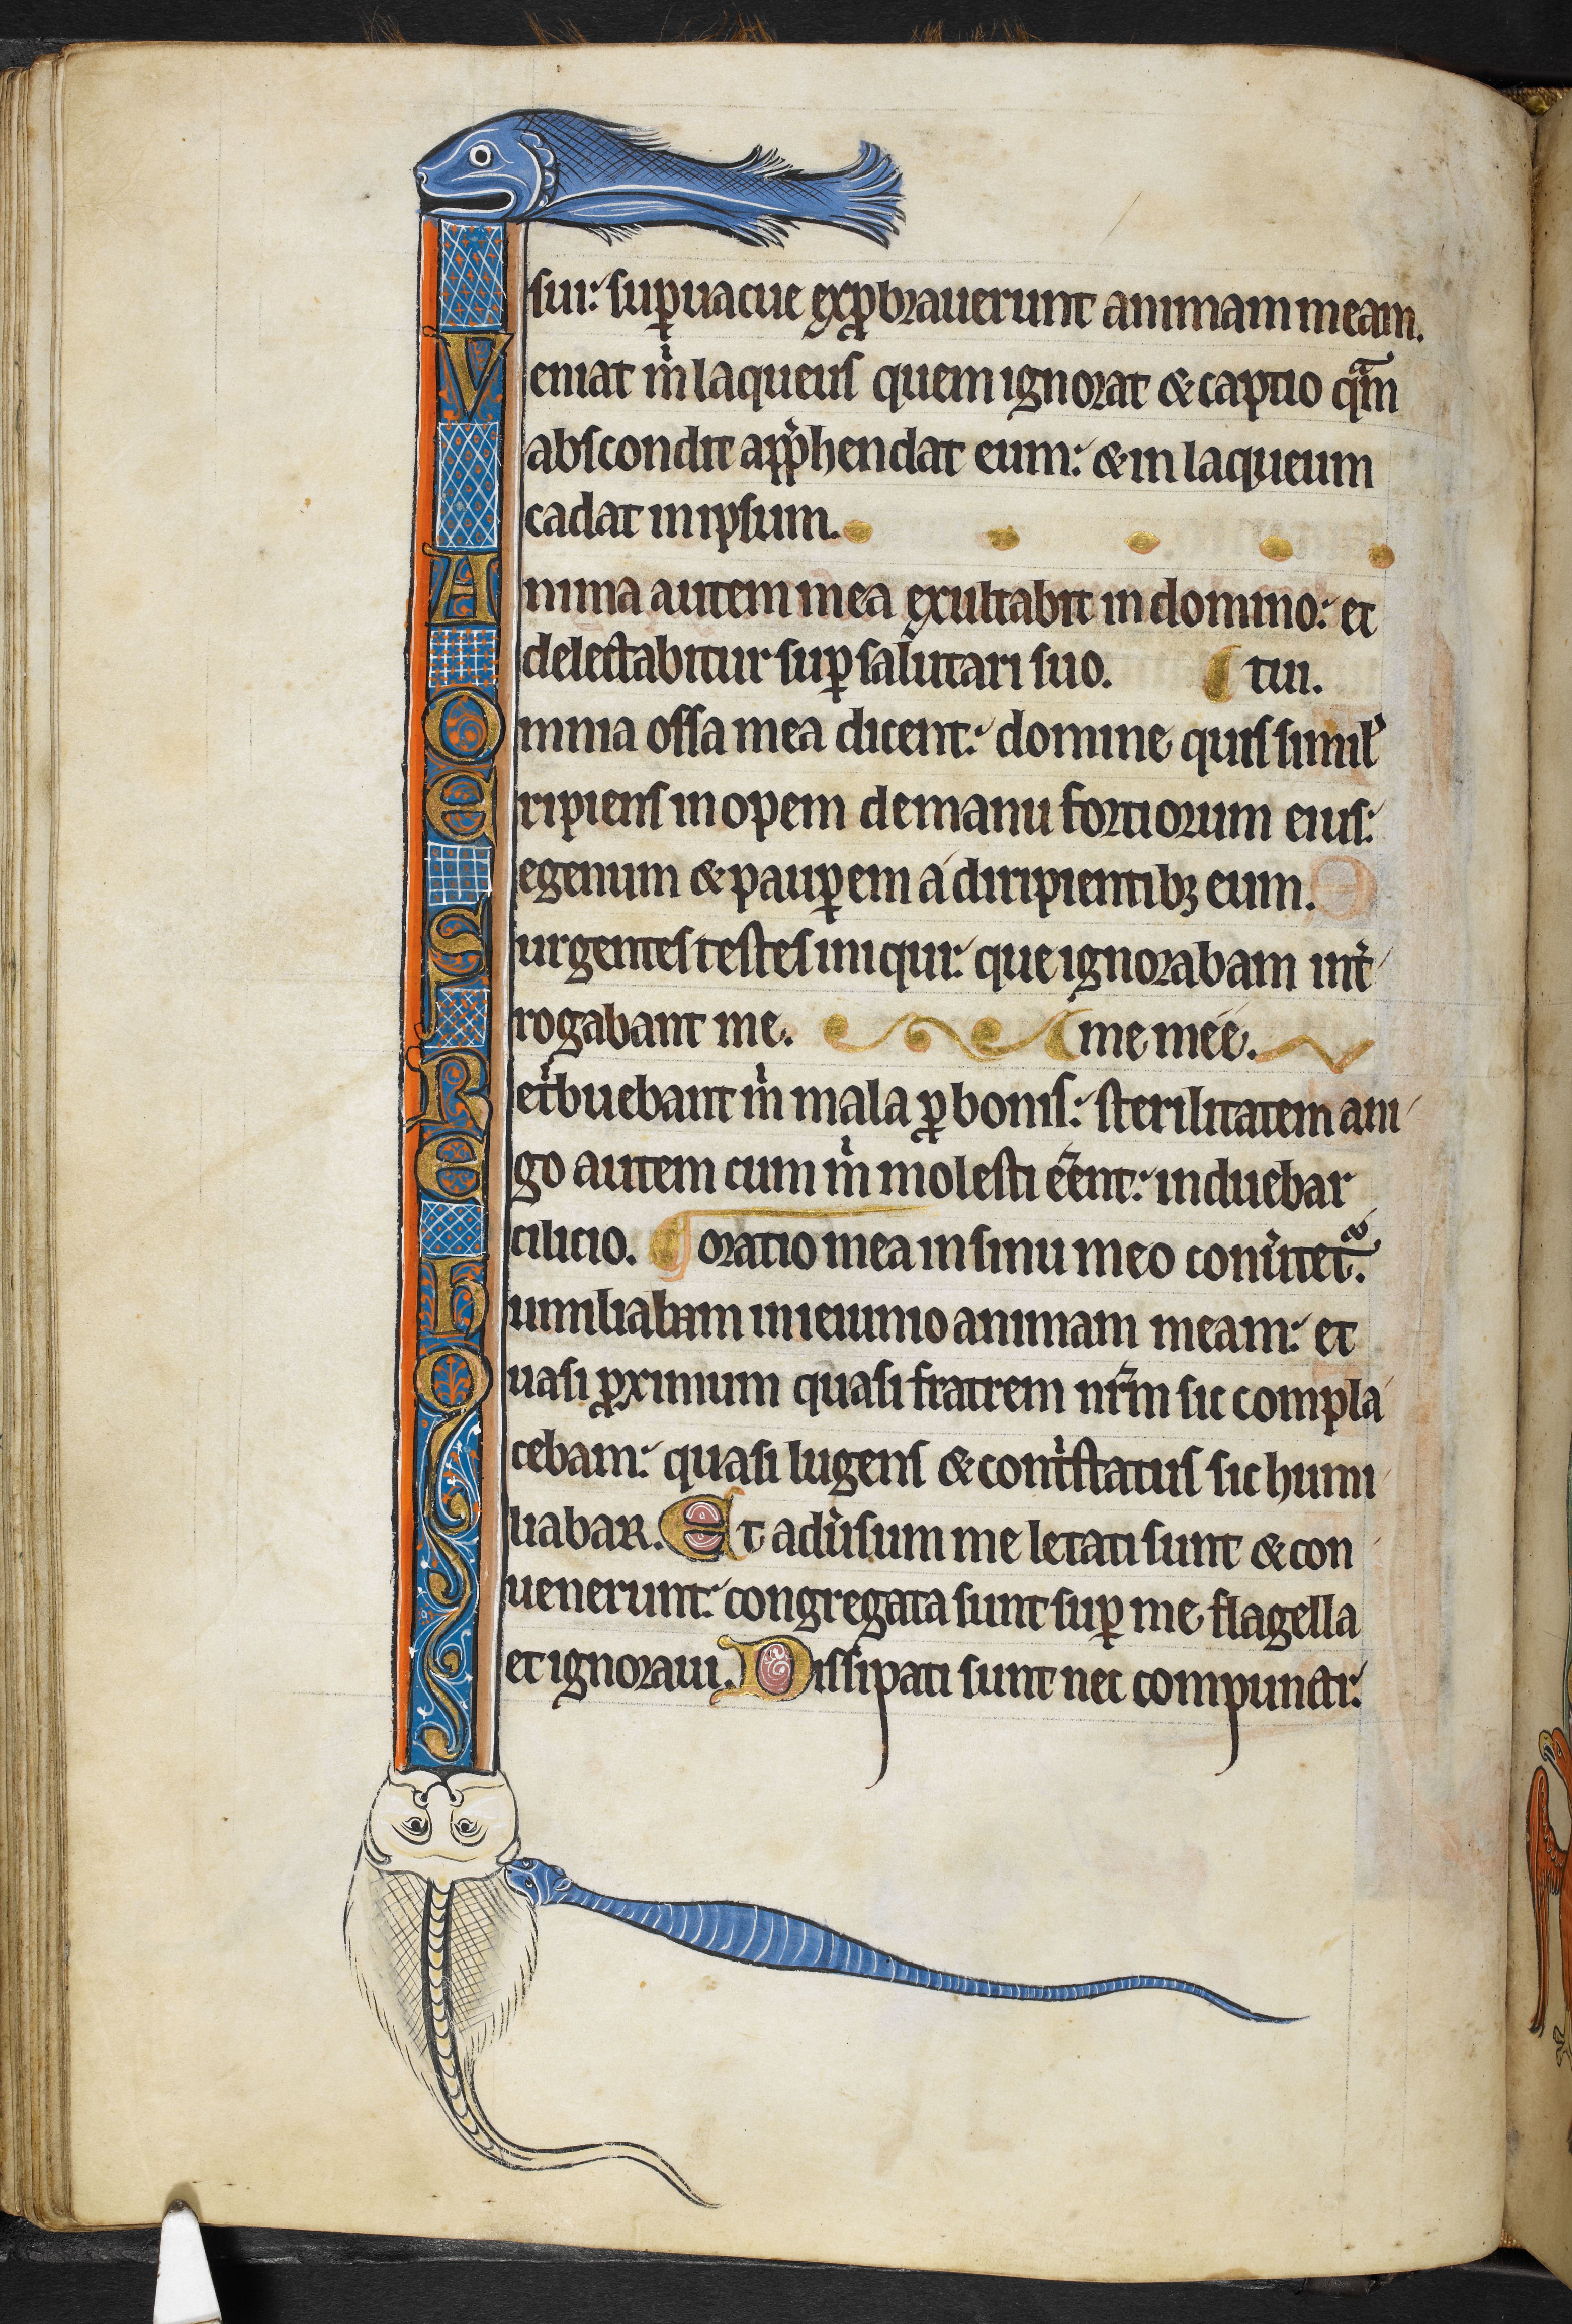 sui: sup̱uacue exp̱brauerunt animam meam.
Veniat m̍ laqueus quem ignorat & captio qᵃm
abscondit app̍hendat eum: & in laqueum
cadat in ipsum.
Anima autem mea exultabit in domino: et
delectabitur sup̱ salutari suo. tui.
Omnia ossa mea dicent: domine quis simil̍
Eripiens inopem de manu fortiorum eius:
egenum & paup̱em a diripientibꝫ eum.
Surgentes testes iniqui: que ignorabam int̍
rogabant me. me meē.
Ret̍buebant m̍ mala ꝓ bonis: sterilitatem ani
Ego autem cum m̍ molesti eēnt: induebar
cilicio. oratio mea in sinu meo conu̍tet᷑.
humiliabam in ieiunio animam meam: et
Quasi ꝓximum quasi fratrem nr̄m sic compla
cebam: quasi lugens & cont̍status sic humi
liabar. Et adu̍sum me letati sunt & con
uenerunt: congregata sunt sup̱ me flagella
et ignoraui. Dissipati sunt nec compuncti: